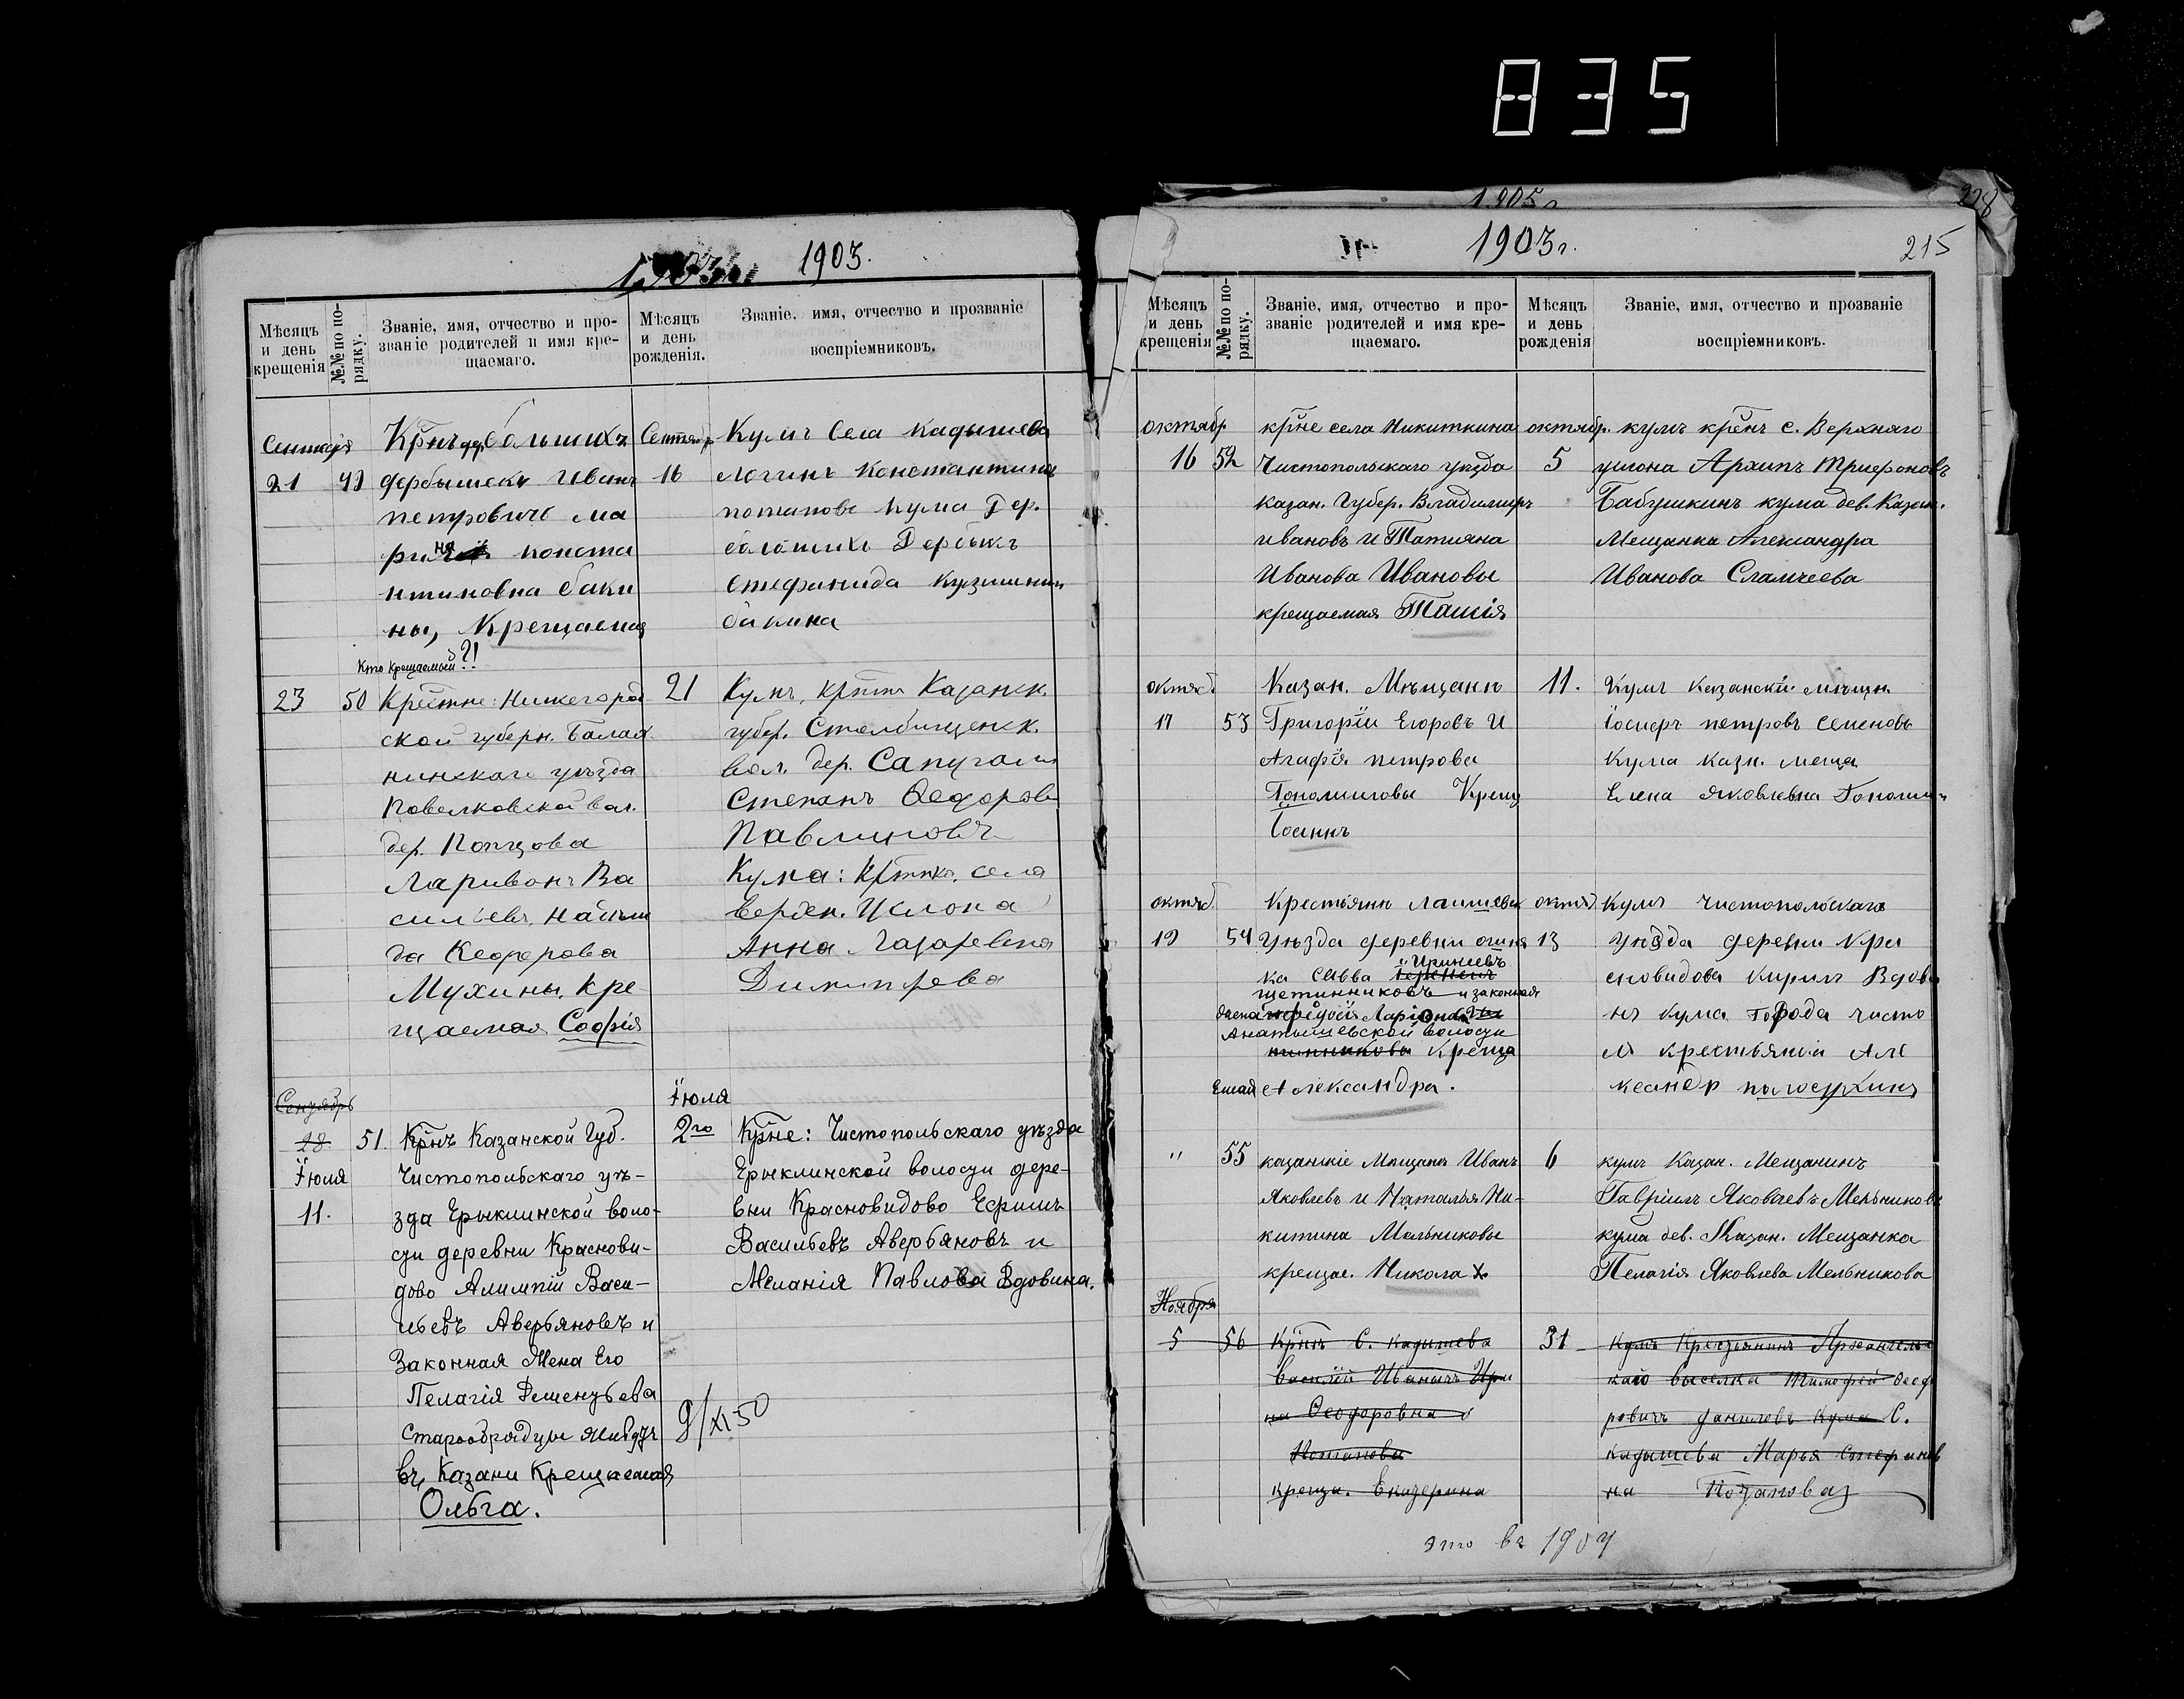 835
1905 г
228
1903г.
1903.
Мѣсяцъ и день крещенія
№№ по порядку.
Званіе, имя, отчество и прозваніе родителей и имя крещаемаго.
Мѣсяцъ и день рожденія.
Званіе, имя, отчество и прозваніе воспріемниковъ.
Сентября
21
49
Крнъ дер больших
дербышекъ Иванъ
петровичъ ма
рина конста
нтиновна баки
ны, Крещаемая
Кто крещаемый?!
Сентябр
16
Кумъ Села Кадышева
логинъ Константинъ
потаповъ Кума Дер.
болшихъ Дербыкъ
Стефанида Кузминич
бакина
23
50
Крестне: Нижегород
ской губерн. Балах
нинскаго уѣзда
Повелковской вол.
дер. Попцова
Ларивонъ Ва
сильевъ,
да Кефорова
Мухины, Кре
щаемая Софія
21
Кумъ, Крстн Казанск.
губер. Столбищенск.
вол. дер. Сапуголи
Степанъ Ѳедоровъ
Павлиновъ
Кума: Крстнка. села
верхн. Услона
Анна Лазаревна
Димитрева
Сентябрь
28.
Іюля
11.
51.
Крнъ Казанской Губ.
Чистопольскаго уѣ-
зда Ерыклинской воло-
сти деревни Краснови-
дово Алимпій Васи-
льевъ Аверьяновъ и
Законная Жена Его
Пелагія Деменьтьева
Старообрядцы живутъ
въ Казани Крещаемая
Ольга.
Іюля
2го
Крне: Чистопольскаго уѣзда
Ерыклинской волости дере-
вни Красновидово Ефимъ
Васильевъ Аверьяновъ и
Меланія Павлова Вдовина.
9/XI 50
1903г.
215
Мѣсяцъ и день крещенія
№№ по порядку.
Званіе, имя, отчество и прозваніе родителей и имя крещаемаго.
Мѣсяцъ и день рожденія
Званіе, имя, отчество и прозваніе воспріемниковъ.
октябр
16
52
крне села Никиткина
Чистопольскаго уѣзда
казан. Губер. Владимиръ
ивановъ и Татияна
Иванова Ивановы
крещаемая Таисія
октябр.
5
кумъ крѣнъ с. Верхняго
услона Архипъ Трифоновъ
Бабушкинъ кума дев. Казан.
Мещанка Александра
Иванова Сламчеева
октяб.
17
53
Казан. Мѣщанъ
Григорій Егоровъ И
Агафія петрова
Гопомиловы Крещ
Іоаннъ
11.
Кумъ казанскій мѣщн.
іосиеръ петровъ семеновъ
Кума казн. меща
Елена яковлевна
октяб.
19
54
Крестьянн лаишевск
Уѣзда деревни
ка Савва Иринеевъ
щетинниковъ и законная
жена Ларіонова
Анатышевской волости
Креща
Емая Александра.
октяб
13
Кумъ чистопольскаго
Уѣзда деревни кра
сновидова кирилъ Вдови
нъ кума города чисто
п крестьянки Але
ксандр полосухина
"
55
казанскіе Мѣщане Иванъ
Яковлевъ и Наталья Ни-
китина Мельниковы
крещае. Никола
6
кумъ Казан. Мещанинъ
Гавріилъ Яковлевъ Мельниковъ
кума дев. Казан. Мещанка
Пелагія Яковлева Мельникова
Ноября
5
56
Крнъ С. Кадышева
Василій Иванычъ Ири
на Ѳеодоровна
Потаповы
креща. Екатерина
31
Кумъ Крестьянинъ Архангельс
каго выселка Тимофей Ѳеод
ровичъ даниловъ Кума С.
Кадышева Марья Стефанов
на Потапова
это въ 1904